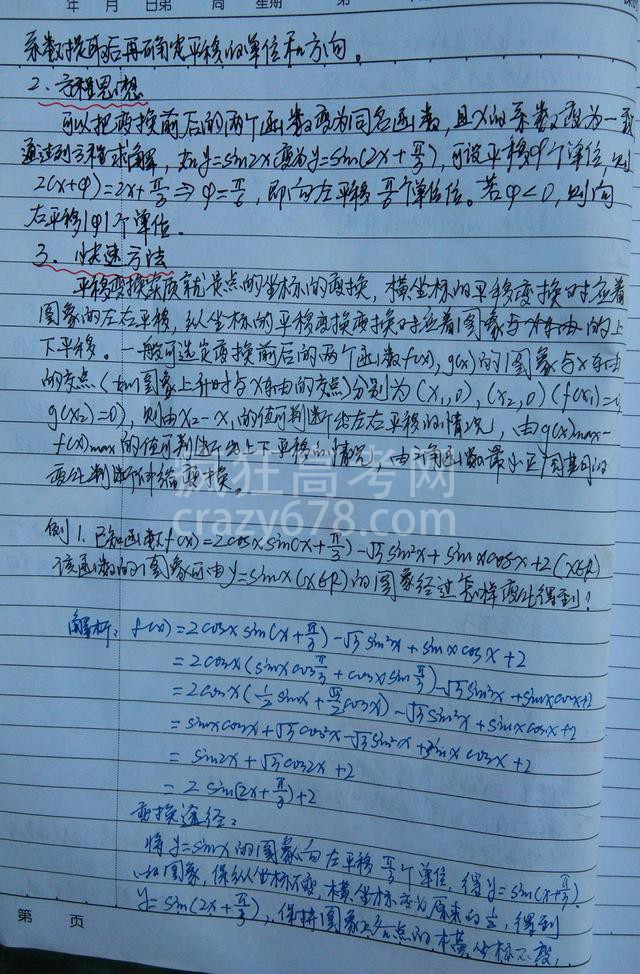 年 月 日 第 周 星期 第
系数提取后再确定平移的单位和方向。
2、方程思想
可以把变换前后的两个函数变为同名函数,且x的系数变为一致
通过列方程求解,如y=sin2x变为y=sin(2x+π/3),可设平移φ个单位,则
2(x+φ)=2x+π/3⇒φ=π/6,即向左平移π/6个单位。若φ<0,则向
右平移|φ|个单位.
3、快速方法
平移变换实质就是点的坐标的变换,横坐标的平移变换对应着
图象的左右平移,纵坐标的平移变换变换对应着图象与x轴的上
下平移。一般可选定变换前后的两个函数f(x),g(x)的图象与x轴
的交点(如图象上升时与x轴的交点)分别为(x₁,0),(x₂,0)(f(x₁)=0,
g(x₂)=0),则由x₂-x₁的值可判断出左右平移的情况,由g(x)max-
f(x)max的值可判断出上下平移的情况,由三角函数最小正周期的
变化判断伸缩变换。
疯狂高考网
crazy678.com
例1.已知函数f(x)=2cosxsin(x+π/3)-√3sin²x+sinxcosx+2(x∈R)
该函数的图象可由y=sinx(x∈R)的图象经过怎样变化得到?
解析:f(x)=2cosxsin(x+π/3)-√3sin²x+sinxcosx+2
=2cosx(sinxcosπ/3+cosxsinπ/3)-√3sin²x+sinxcosx+2
=2cosx(1/2sinx+√3/2cosx)-√3sin²x+sinxcosx+2
=sinxcosx+√3cos²x-√3sin²x+sinxcosx+2
=sin2x+√3cos2x+2
=2sin(2x+π/3)+2
变换途径:
将y=sinx的图象向左平移π/3个单位,得y=sin(x+π/3)
的图象,保纵坐标不变,横坐标变为原来的1/2,得到
y=sin(2x+π/3),保持图象上各点的横坐标不变,
第 页